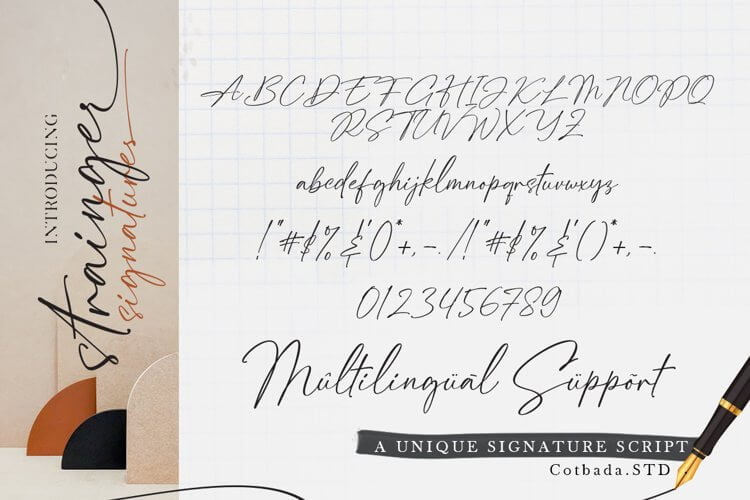 INTRODUCING
Strainger
signatures
ABCDEFGHIJKLMNOPQ
RSTUVWXYZ
abcdefghijklmnopqrstuvwxyz
!"#$%&'()*+,-./!"#$%&'()*+,-.
0123456789
Mûltilingüàl Süppõrt
A UNIQUE SIGNATURE SCRIPT
Cotbada.STD